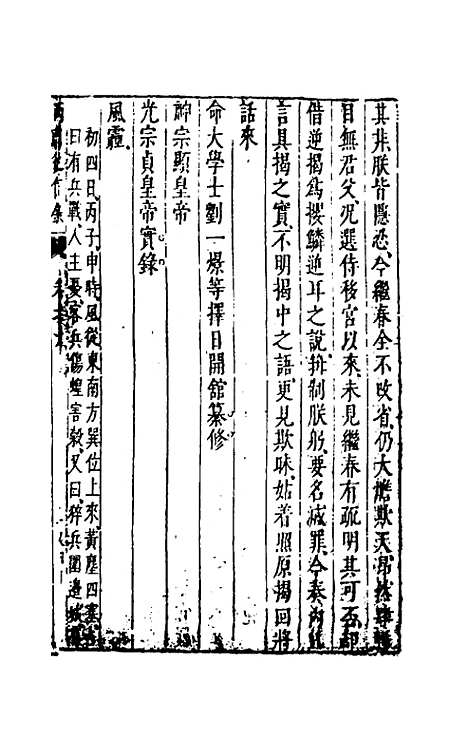 其非朕皆隱忍今繼春全不改省仍大膽欺天昂然
目無君父況選侍移宮以來未見繼春有疏明其可否却
借逆揭爲攖鱗逆耳之說拚制朕躬要名滅罪今奏內
言具揭之實不明揭中之語更見欺昧姑着照原揭回將
話來
命大學士劉一燝等擇日開館纂修
神宗顯皇帝
光宗貞皇帝實錄
風霾
初四日丙子申時風從東南方巽位上來黃塵四塞
曰有兵戰人主憂客兵傷蝗害穀又曰猝兵圍邊城
兩朝從信錄